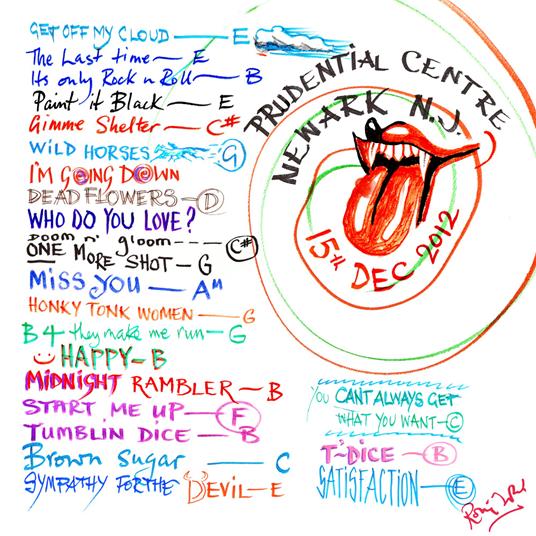 GET OFF MY CLOUD — E
The Last time — E
Its only Rock n Roll — B
Paint it Black — E
Gimme Shelter — C#
WILD HORSES G
I'M GOING DOWN
DEAD FLOWERS — D
WHO DO YOU LOVE?
DOOM n' gloom --- C#
ONE MORE SHOT — G
MISS YOU — AM
HONKY TONK WOMEN — G
B4 they make me run — G
HAPPY — B
MIDNIGHT RAMBLER — B
START ME UP — F
TUMBLIN DICE — B
Brown Sugar — C
SYMPATHY FOR THE DEVIL — E
PRUDENTIAL CENTRE
NEWARK N.J.
15th DEC 2012
YOU CANT ALWAYS GET
WHAT YOU WANT — C
T~DICE — B
SATISFACTION — E